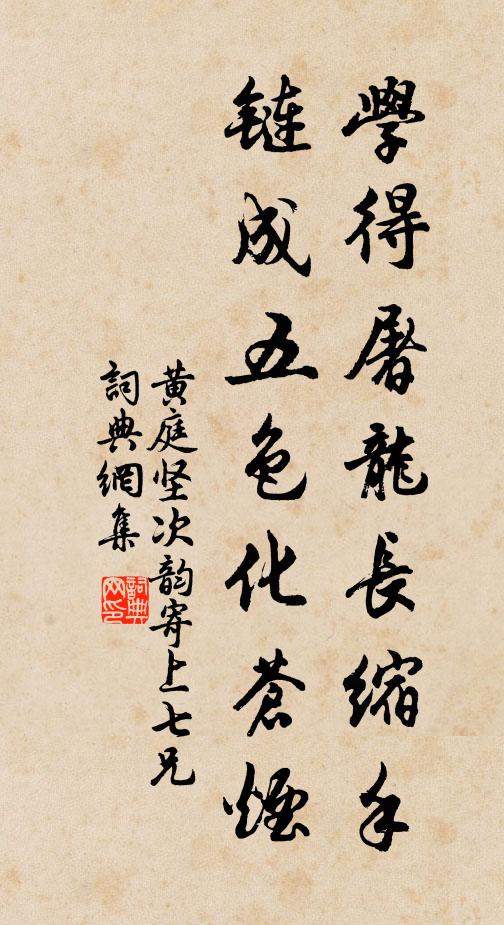 學得屠龍長縮手
鏈成五色化蒼煙
黄庭坚次韵寄上七兄
詞典網集
詞典
网印